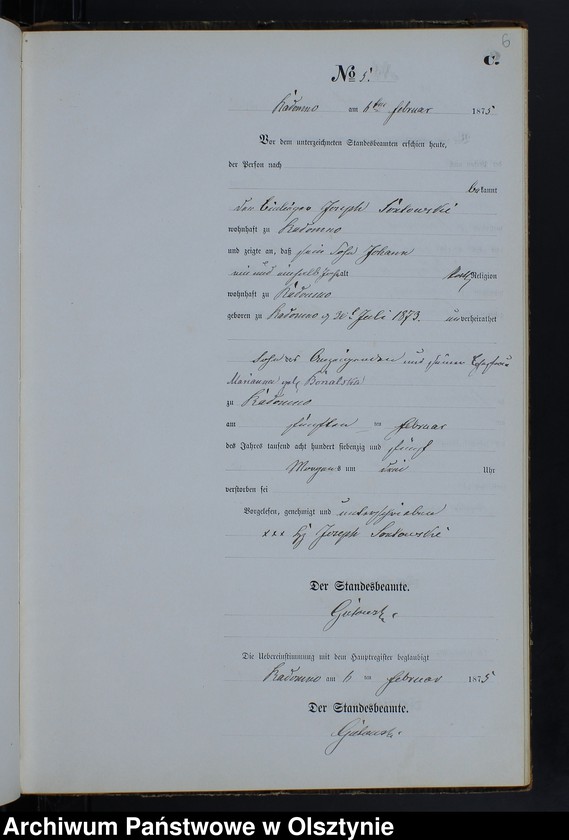 6
C.
No 5.
Radomno am 6ten Februar 1875
Vor dem unterzeichneten Standesbeamten erschien heute,
der Person nach
bekannt
den Joseph
wohnhaft zu Radomno
und zeigte an, daß sein Sohn Johann
ein und einhalb Jahr alt kath. Religion
wohnhaft zu Radomno
geboren zu Radomno Juli 1873. unverheirathet
Sohn des Anzeigenden und seiner Ehefrau
Marianna geb.
zu Radomno
am fünften ten Februar
des Jahres tausend acht hundert siebenzig und fünf
Morgens um drei Uhr
verstorben sei
Vorgelesen, genehmigt und unterschrieben
xxx Joseph
Der Standesbeamte.
Die Uebereinstimmung mit dem Hauptregister beglaubigt
Radomno am 6 ten Februar 1875
Der Standesbeamte.
Archiwum Państwowe w Olsztynie